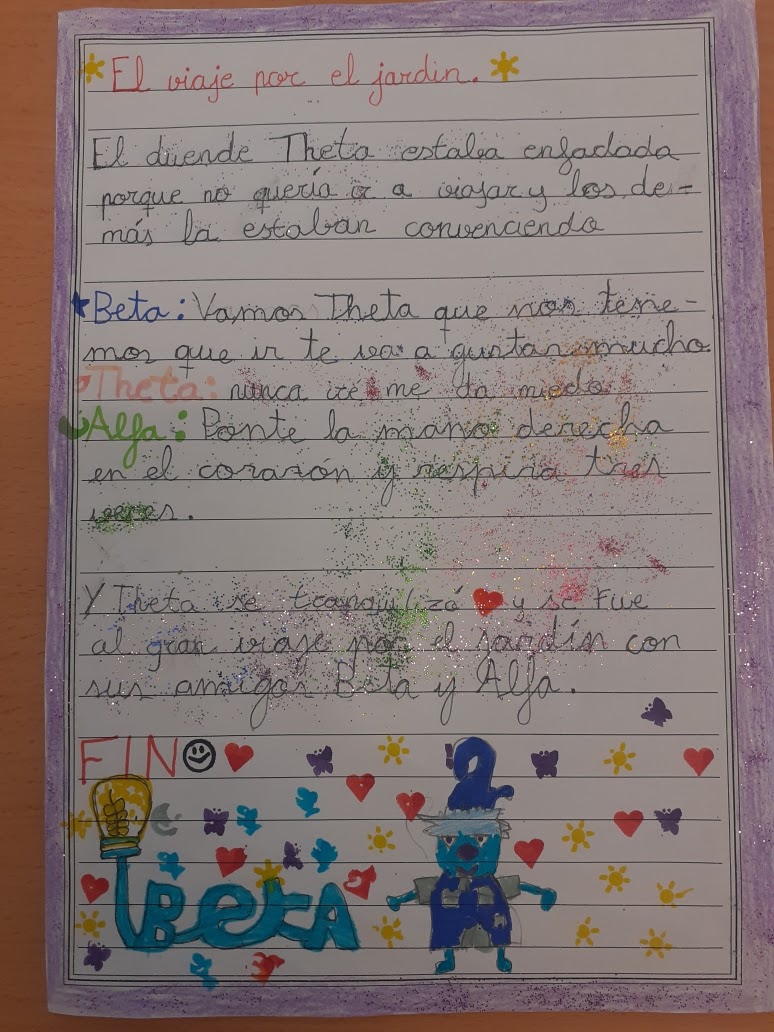 El viaje por el jardin.
El duende Theta estaba enfadada
porque no quería ir a viajar y los de-
más la estaban convenciendo
Beta: Vamos Theta que nos tene-
mos que ir te va a gustar mucho.
Theta: nunca iré me da miedo
Alfa: Ponte la mano derecha
en el corazón y respira tres
veces.
Y Theta se tranquilizó y se fue
al gran viaje por el jardín con
sus amigos Beta y Alfa.
FIN
BetA